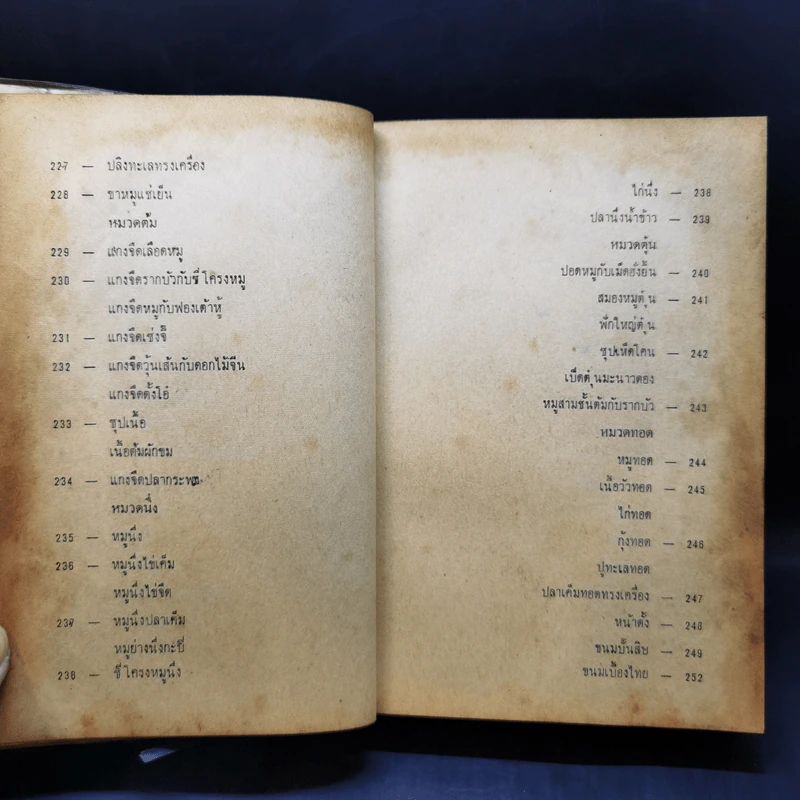 227 — ปลิงทะเลทรงเครื่อง
228 — ขาหมูแช่เย็น
หมวดต้ม
229 — แกงจืดเลือดหมู
230 — แกงจืดรากบัวกับซี่โครงหมู
แกงจืดหมูกับฟองเต้าหู้
231 — แกงจืดเซ่งจี๊
232 — แกงจืดวุ้นเส้นกับดอกไม้จีน
แกงจืดตั้งโอ๋
233 — ซุปเนื้อ
เนื้อต้มผักขม
234 — แกงจืดปลากระพง
หมวดนึ่ง
235 — หมูนึ่ง
236 — หมูนึ่งไข่เค็ม
หมูนึ่งไข่จืด
237 — หมูนึ่งปลาเค็ม
หมูย่างนึ่งกะปิ
238 — ซี่โครงหมูนึ่ง
ไก่นึ่ง — 238
ปลานึ่งน้ำข้าว — 239
หมวดตุ๋น
ปอดหมูกับเม็ดฮั่งยิ้น — 240
สมองหมูตุ๋น — 241
ฟักใหญ่ตุ๋น
ซุปเห็ดโคน — 242
เป็ดตุ๋นมะนาวดอง
หมูสามชั้นต้มกับรากบัว — 243
หมวดทอด
หมูทอด — 244
เนื้อวัวทอด — 245
ไก่ทอด
กุ้งทอด — 246
ปูทะเลทอด
ปลาเค็มทอดทรงเครื่อง — 247
หน้าตั้ง — 248
ขนมบั้นสิษ — 249
ขนมเบื้องไทย — 252